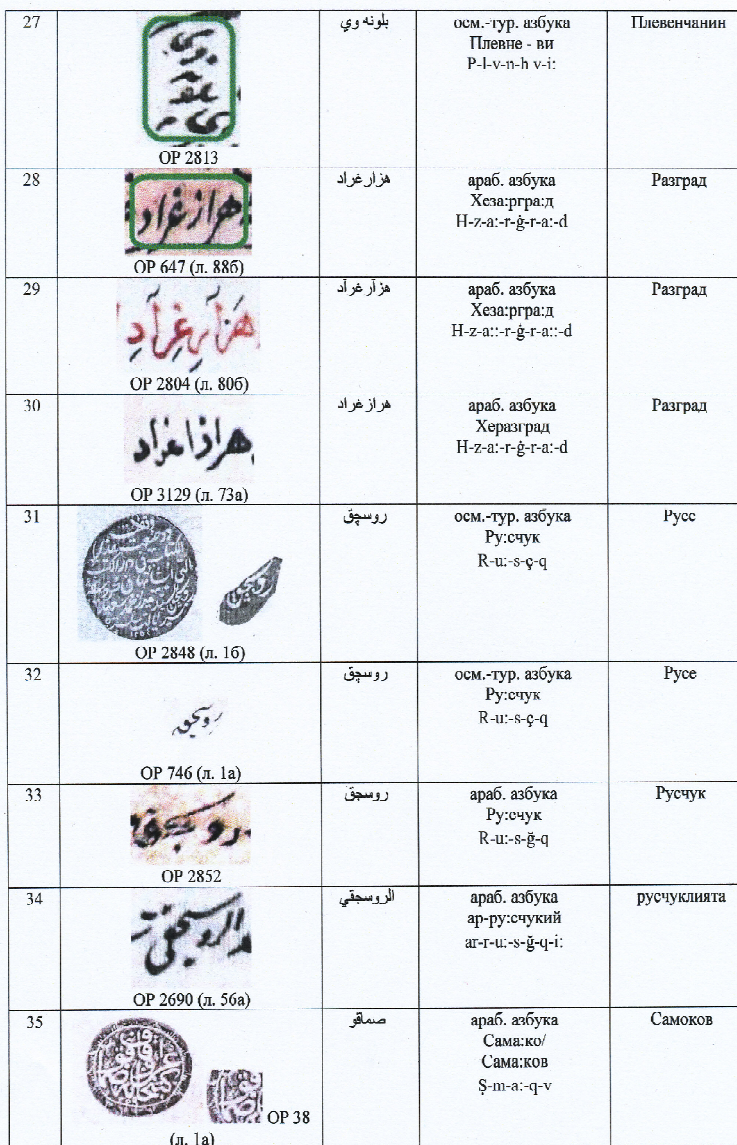 27
ОР 2813
بلونه وي
осм.-тур. азбука
Плевне - ви
P-l-v-n-h v-i:
Плевенчанин
28
هزارغراد
ОР 647 (л. 88б)
هزارغراد
араб. азбука
Хеза:ргра:д
H-z-a:-r-ġ-r-a:-d
Разград
29
ОР 2804 (л. 80б)
هزآرغرآد
араб. азбука
Хеза:ргра:д
H-z-a::-r-ġ-r-a::-d
Разград
30
ОР 3129 (л. 73а)
هرازغراد
араб. азбука
Херазград
H-z-a:-r-ġ-r-a:-d
Разград
31
ОР 2848 (л. 1б)
روسچق
осм.-тур. азбука
Ру:счук
R-u:-s-ç-q
Русе
32
ОР 746 (л. 1а)
روسچق
осм.-тур. азбука
Ру:счук
R-u:-s-ç-q
Русе
33
ОР 2852
روسجق
араб. азбука
Ру:счук
R-u:-s-ğ-q
Русчук
34
ОР 2690 (л. 56а)
الروسجقي
араб. азбука
ар-ру:счукий
ar-r-u:-s-ğ-q-i:
русчуклията
35
ОР 38
(л. 1а)
صماقو
араб. азбука
Сама:ко/
Сама:ков
Ṣ-m-a:-q-v
Самоков